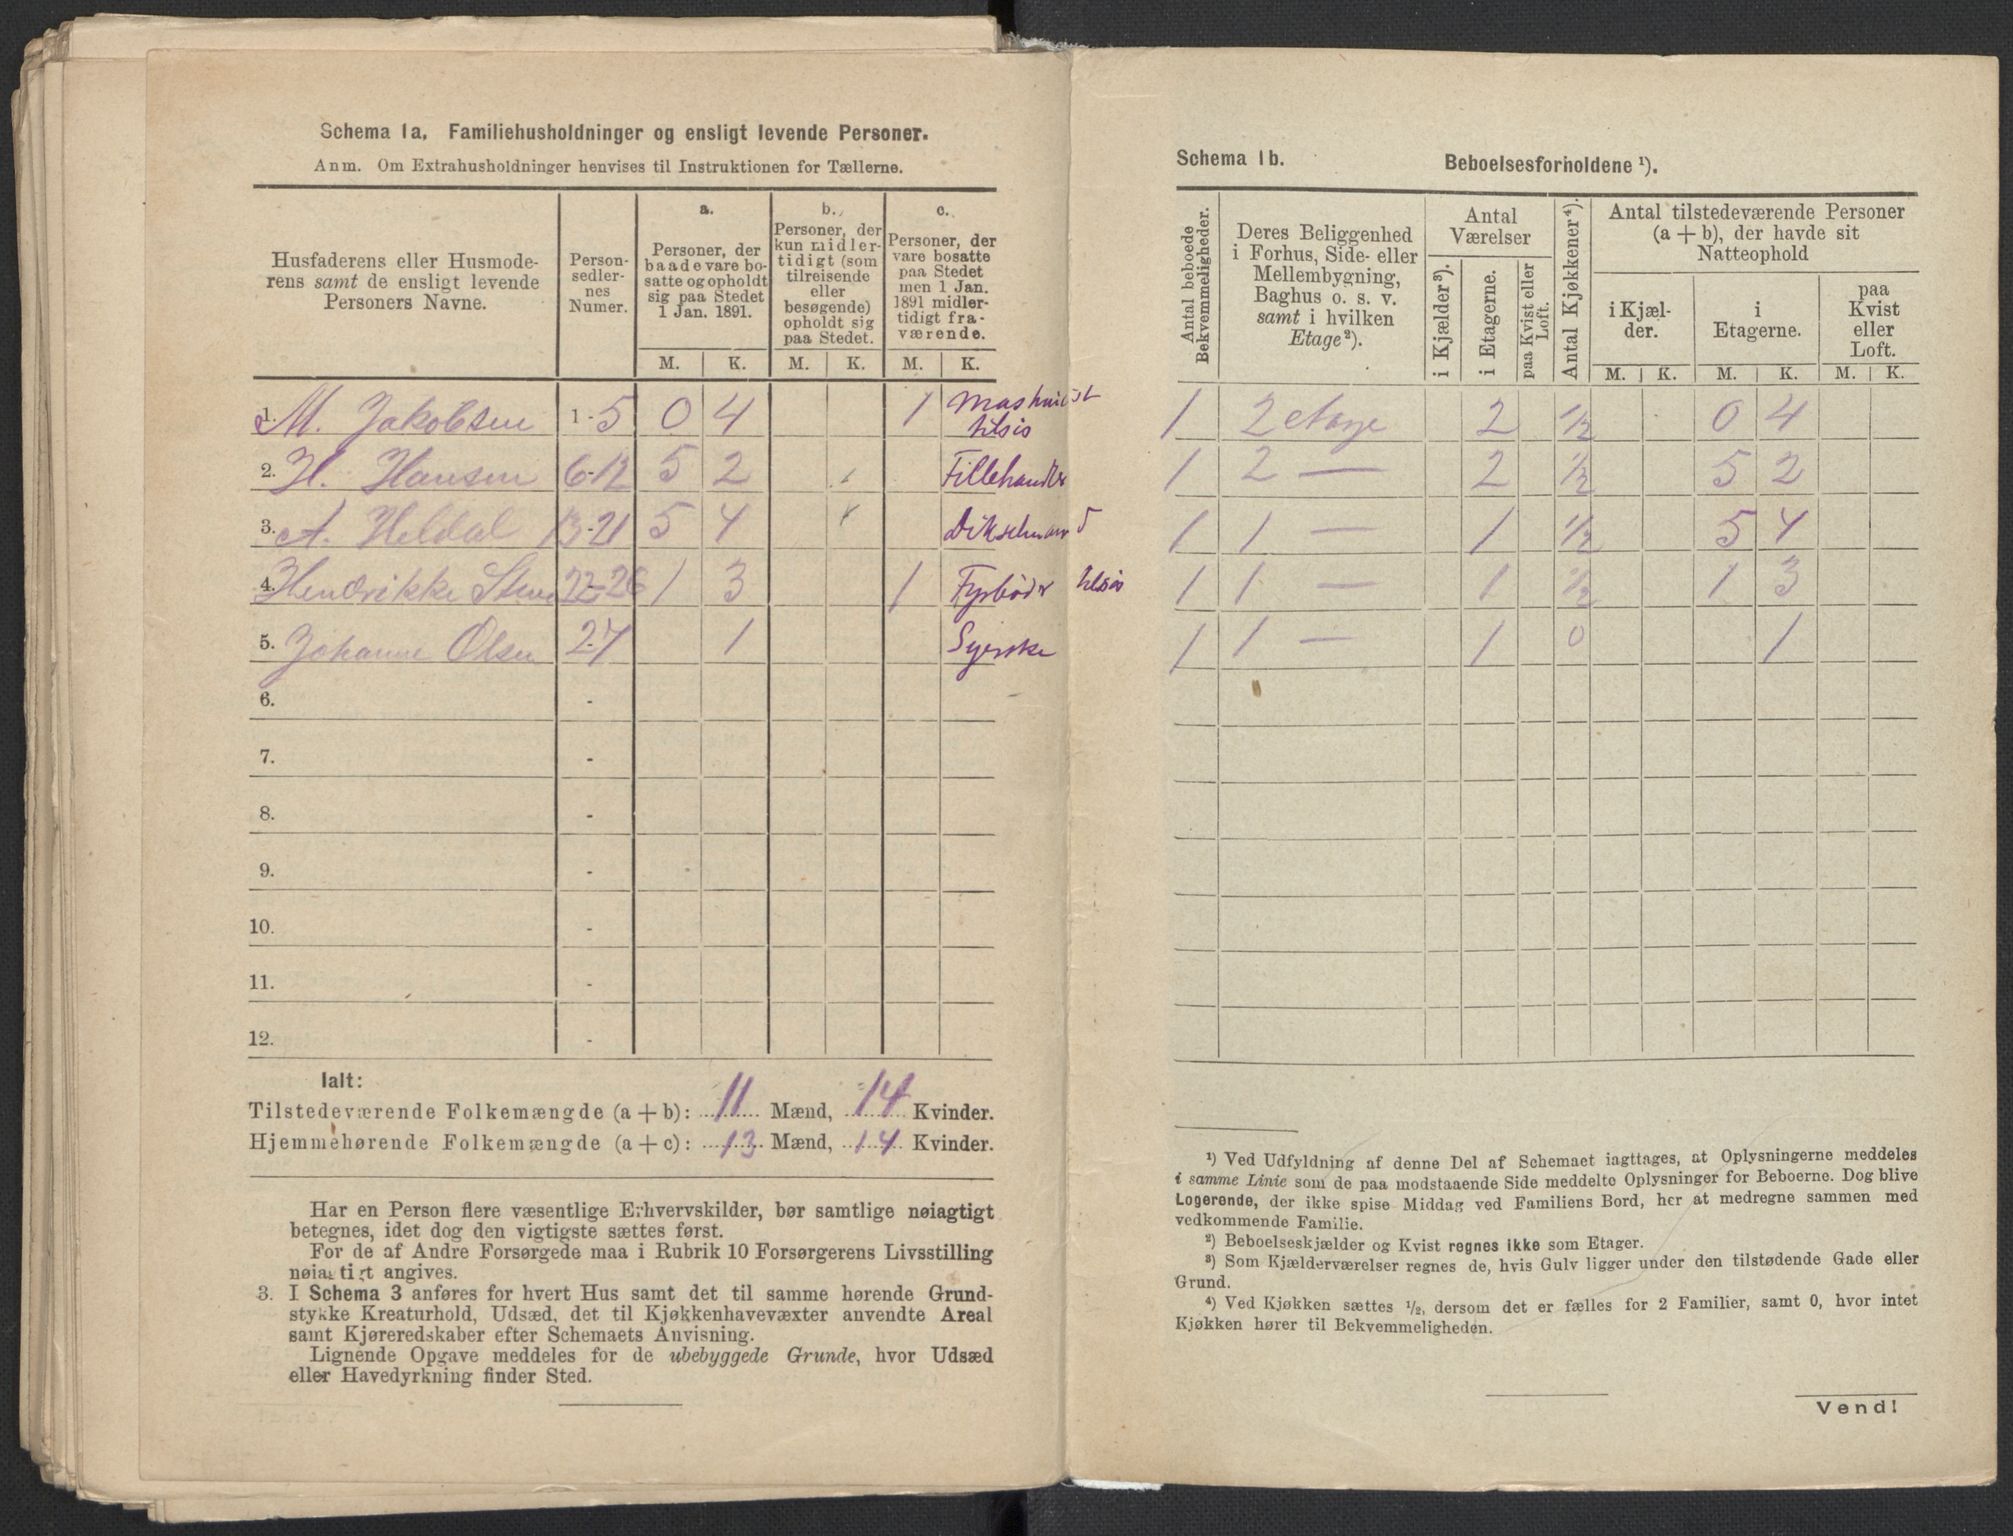 Schema 1a. Familiehusholdninger og ensligt levende Personer.
Anm. Om Extrahusholdninger henvises til Instruktionen for Tællerne.
Husfaderens eller Husmode-
rens samt de ensligt levende
Personers Navne.
Person-
sedler-
nes
Numer.
a.
Personer, der
baade vare bo-
satte og opholdt
sig paa Stedet
1 Jan. 1891.
b.
Personer, der
kun midler-
tidigt (som
tilreisende
eller
besøgende)
opholdt sig
paa Stedet.
c.
Personer, der
vare bosatte
paa Stedet
men 1 Jan.
1891 midler-
tidigt fra-
værende.
M. K. M. K. M. K.
1. M. Jakobsen 1-5 0 4 1 Mashinist
tilsis
2. H. Hansen 6-12 5 2 Fillehandler
3. A. Heldal 13-21 5 4
4. Hendrikke 22-26 1 3 1 Fyrbøder tilsis
5. Johanne Olsen 27 1 Syerske
6. -
7. -
8. -
9. -
10. -
11. -
12. -
Ialt:
Tilstedeværende Folkemængde (a + b): 11 Mænd, 14 Kvinder.
Hjemmehørende Folkemængde (a + c): 13 Mænd, 14 Kvinder.
Har en Person flere væsentlige Erhvervskilder, bør samtlige nøiagtigt
betegnes, idet dog den vigtigste sættes først.
For de af Andre Forsørgede maa i Rubrik 10 Forsørgerens Livsstilling
nøiagtigt angives.
3. I Schema 3 anføres for hvert Hus samt det til samme hørende Grund-
stykke Kreaturhold, Udsæd, det til Kjøkkenhavevæxter anvendte Areal
samt Kjøreredskaber efter Schemaets Anvisning.
Lignende Opgave meddeles for de ubebyggede Grunde, hvor Udsæd
eller Havedyrkning finder Sted.
Schema 1b. Beboelsesforholdene ¹).
Antal beboede
Bekvemmeligheder.
Deres Beliggenhed
i Forhus, Side- eller
Mellembygning,
Baghus o. s. v.
samt i hvilken
Etage²).
Antal
Værelser
i Kjælder ³).
i Etagerne.
paa Kvist eller
Loft.
Antal Kjøkkener⁴).
Antal tilstedeværende Personer
(a + b), der havde sit
Natteophold
i Kjæl-
der.
i
Etagerne.
paa
Kvist
eller
Loft.
M. K. M. K. M. K.
1 2 etage 2 ½ 0 4
1 2 — 2 ½ 5 2
1 1 — 1 ½ 5 4
1 1 — 1 ½ 1 3
1 1 — 1 0 1
¹) Ved Udfyldning af denne Del af Schemaet iagttages, at Oplysningerne meddeles
i samme Linie som de paa modstaaende Side meddelte Oplysninger for Beboerne. Dog blive
Logerende, der ikke spise Middag ved Familiens Bord, her at medregne sammen med
vedkommende Familie.
²) Beboelseskjælder og Kvist regnes ikke som Etager.
³) Som Kjælderværelser regnes de, hvis Gulv ligger under den tilstødende Gade eller
Grund.
⁴) Ved Kjøkken sættes ½, dersom det er fælles for 2 Familier, samt 0, hvor intet
Kjøkken hører til Bekvemmeligheden.
Vend!